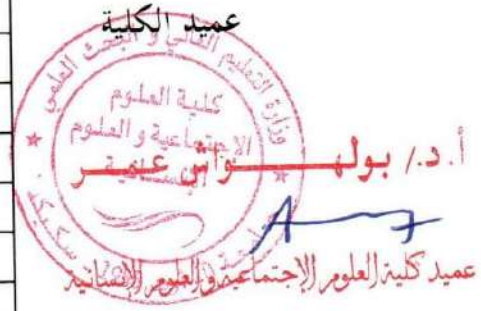 عميد الكلية
وزارة التعليم العالي و البحث العلمي
كلية العلوم
الاجتماعية و العلوم
الإنسانية
سكيكدة
أ. د/ بولهـــــواش عمـــر
عميد كلية العلوم الإجتماعية و العلوم الإنسانية